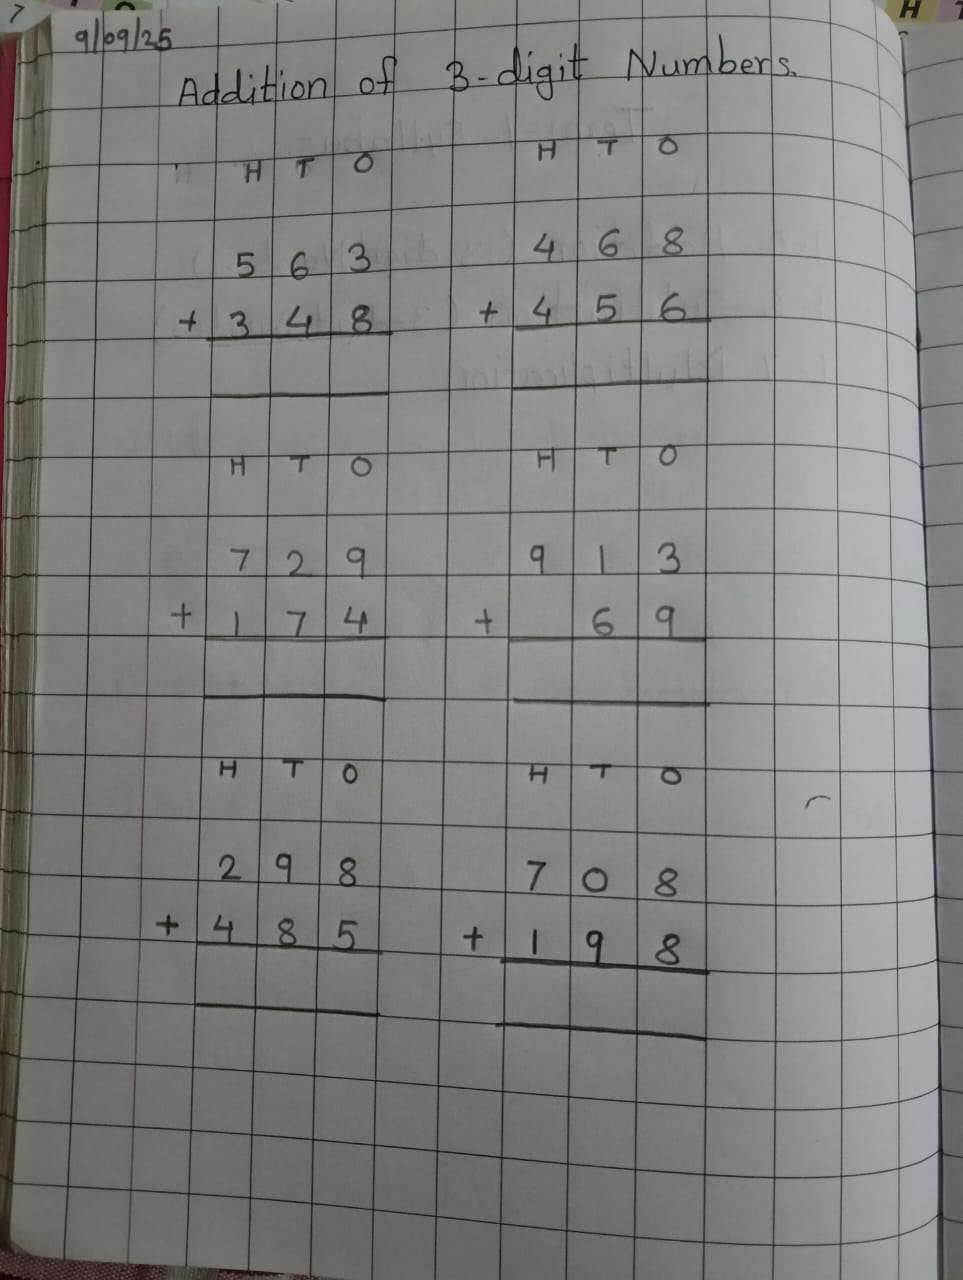 9/09/25
Addition of 3-digit Numbers.
H T O
H T O
5 6 3
4 6 8
+ 3 4 8
+ 4 5 6
H T O
H T O
7 2 9
9 1 3
+ 1 7 4
+ 6 9
H T O
H T O
2 9 8
7 0 8
+ 4 8 5
+ 1 9 8